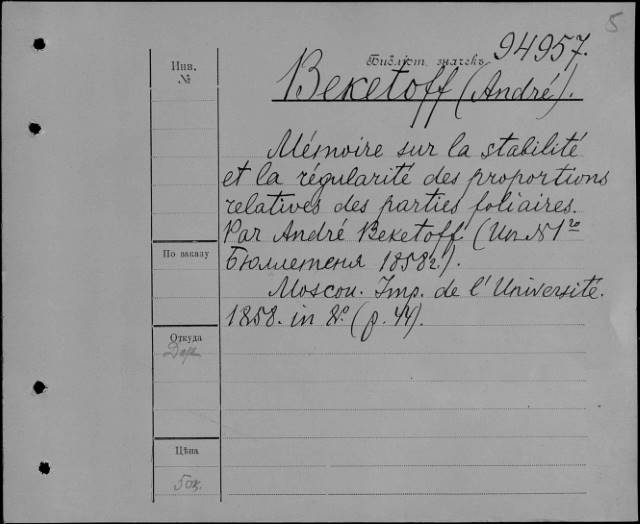 5
94957.
Инв.
№
Библіот. значекъ
Beketoff (André).
Mémoire sur la stabilité
et la régularité des proportions
relatives des parties foliaires.
Par André Beketoff (Из № 1го
По заказу
Бюллетеня 1858 г.).
Moscou. Imp. de l'Université.
1858. in 8º. (p. 44).
Откуда
Дар
Цѣна
50к.